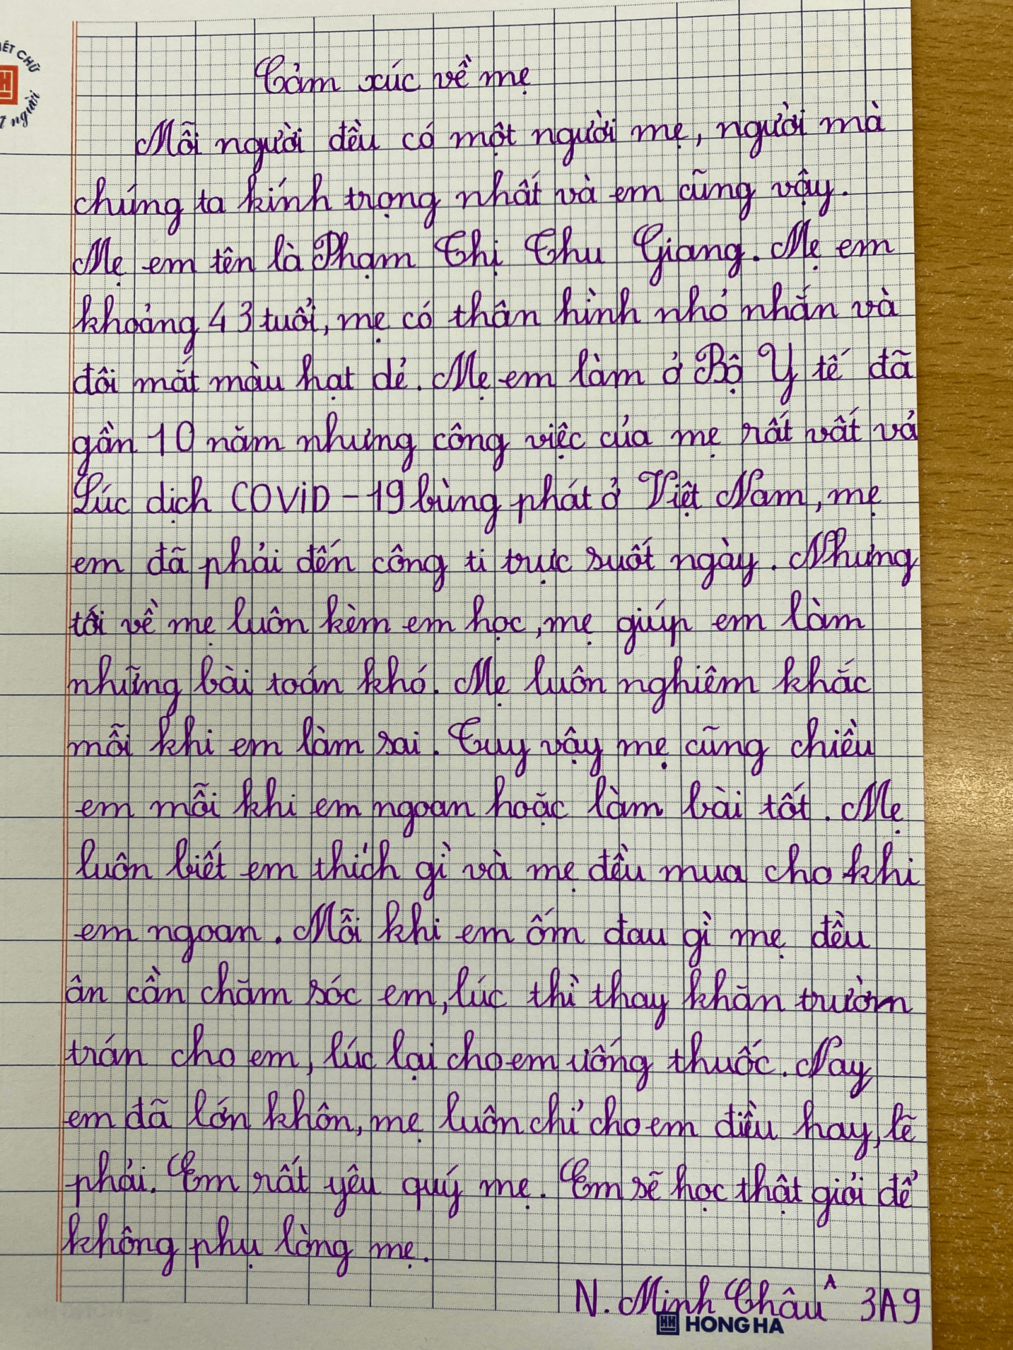 ẾT CHỮ
người
Cảm xúc về mẹ
Mỗi người đều có một người mẹ, người mà
chúng ta kính trọng nhất và em cũng vậy.
Mẹ em tên là Phạm Thị Thu Giang. Mẹ em
khoảng 43 tuổi, mẹ có thân hình nhỏ nhắn và
đôi mắt màu hạt dẻ. Mẹ em làm ở Bộ Y tế đã
gần 10 năm nhưng công việc của mẹ rất vất vả
Lúc dịch COVID-19 bùng phát ở Việt Nam, mẹ
em đã phải đến công ti trực suốt ngày. Nhưng
tối về mẹ luôn kèm em học, mẹ giúp em làm
những bài toán khó. Mẹ luôn nghiêm khắc
mỗi khi em làm sai. Tuy vậy mẹ cũng chiều
em mỗi khi em ngoan hoặc làm bài tốt. Mẹ
luôn biết em thích gì và mẹ đều mua cho khi
em ngoan. Mỗi khi em ốm đau gì mẹ đều
ân cần chăm sóc em, lúc thì thay khăn trườm
trán cho em, lúc lại cho em uống thuốc. Nay
em đã lớn khôn, mẹ luôn chỉ cho em điều hay, lẽ
phải. Em rất yêu quý mẹ. Em sẽ học thật giỏi để
không phụ lòng mẹ.
N. Minh Châu 3A9
HONG HA